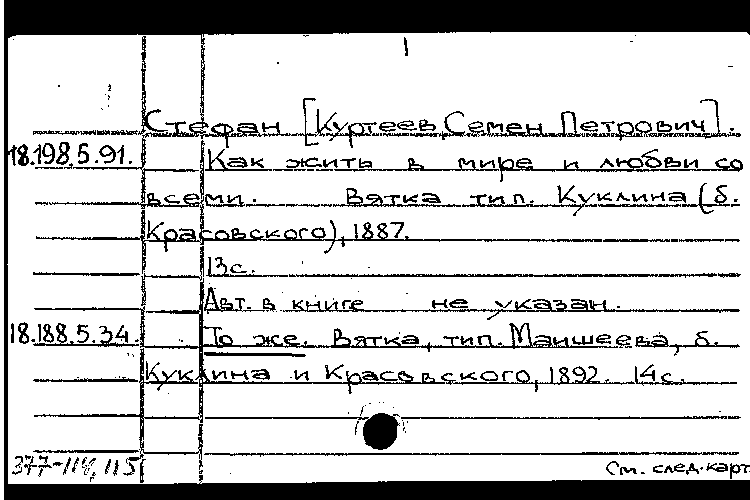 1
Стефан [Куртеев, Семен Петрович].
18.198.5.91. Как жить в мире и любви со
всеми. Вятка тип. Куклина (б.
Красовского), 1887.
13с.
Авт. в книге не указан.
18.188.5.34. То же. Вятка, тип. Маишеева, б.
Куклина и Красовского, 1892. 14с.
377-114, 115
См. след. карт.